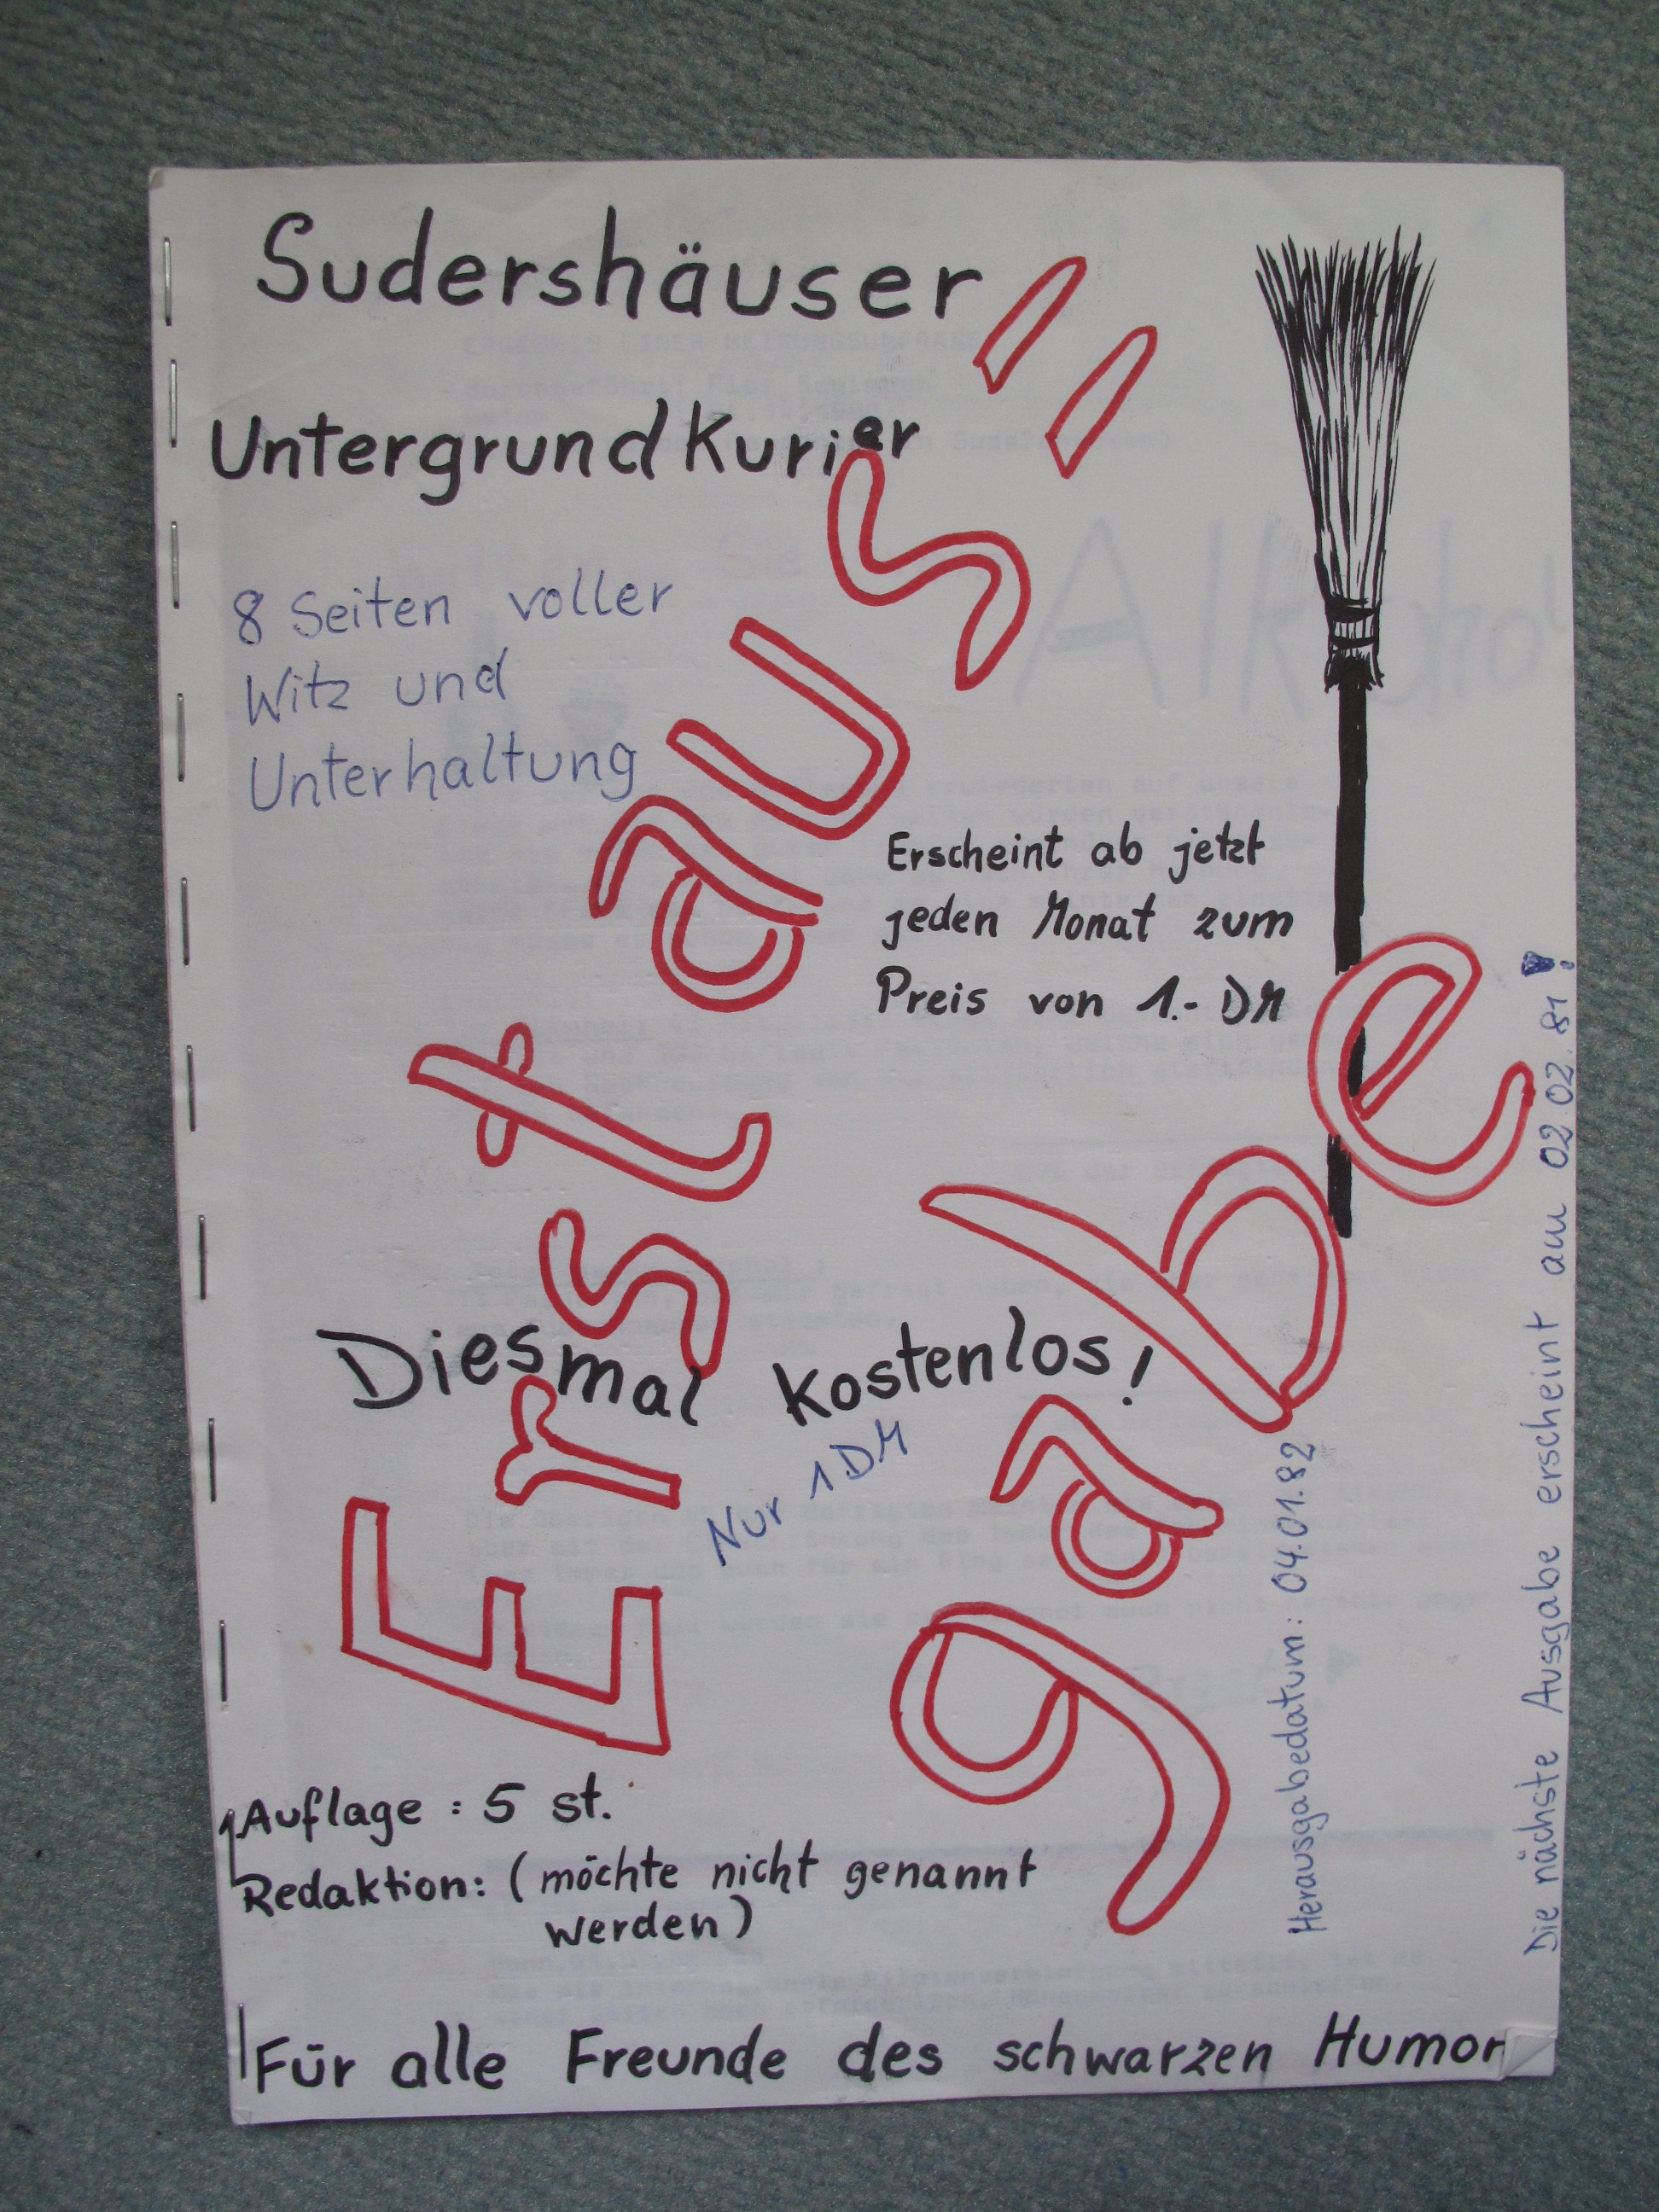 Sudershäuser
Untergrundkurier
8 Seiten voller
Witz und
Unterhaltung
Erstaus=
gabe
Erscheint ab jetzt
jeden Monat zum
Preis von 1.- DM
Diesmal kostenlos!
Nur 1.DM
Auflage: 5 st.
Redaktion: (möchte nicht genannt
werden)
Für alle Freunde des schwarzen Humor
Herausgabedatum: 04.01.82
Die nächste Ausgabe erscheint am 02.02.81!